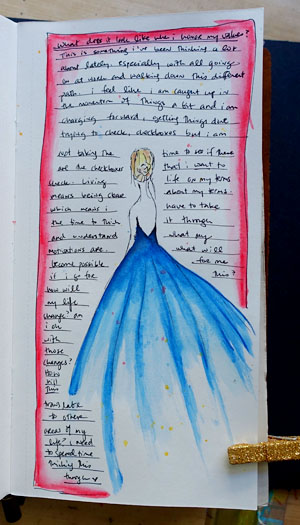 What does it look like when i honor my values?
This is something i've been thinking a lot
about lately, especially with all going
on at work and walking down this different
path. i feel like i am caught up in
the momentum of things a bit and i am
charging forward, getting things done
trying to check checkboxes but i am
not taking the time to see if these
are the checkboxes that i want to
check. Living life on my terms
means being clear about my terms.
which means i have to take
the time to think it through
and understand what my
motivations are. what will
become possible for me
if i go for this?
how will
my life
change? am
i ok
with
those
changes?
How
will
this
translate
to other
areas of my
life? i need
to spend time
thinking this
through